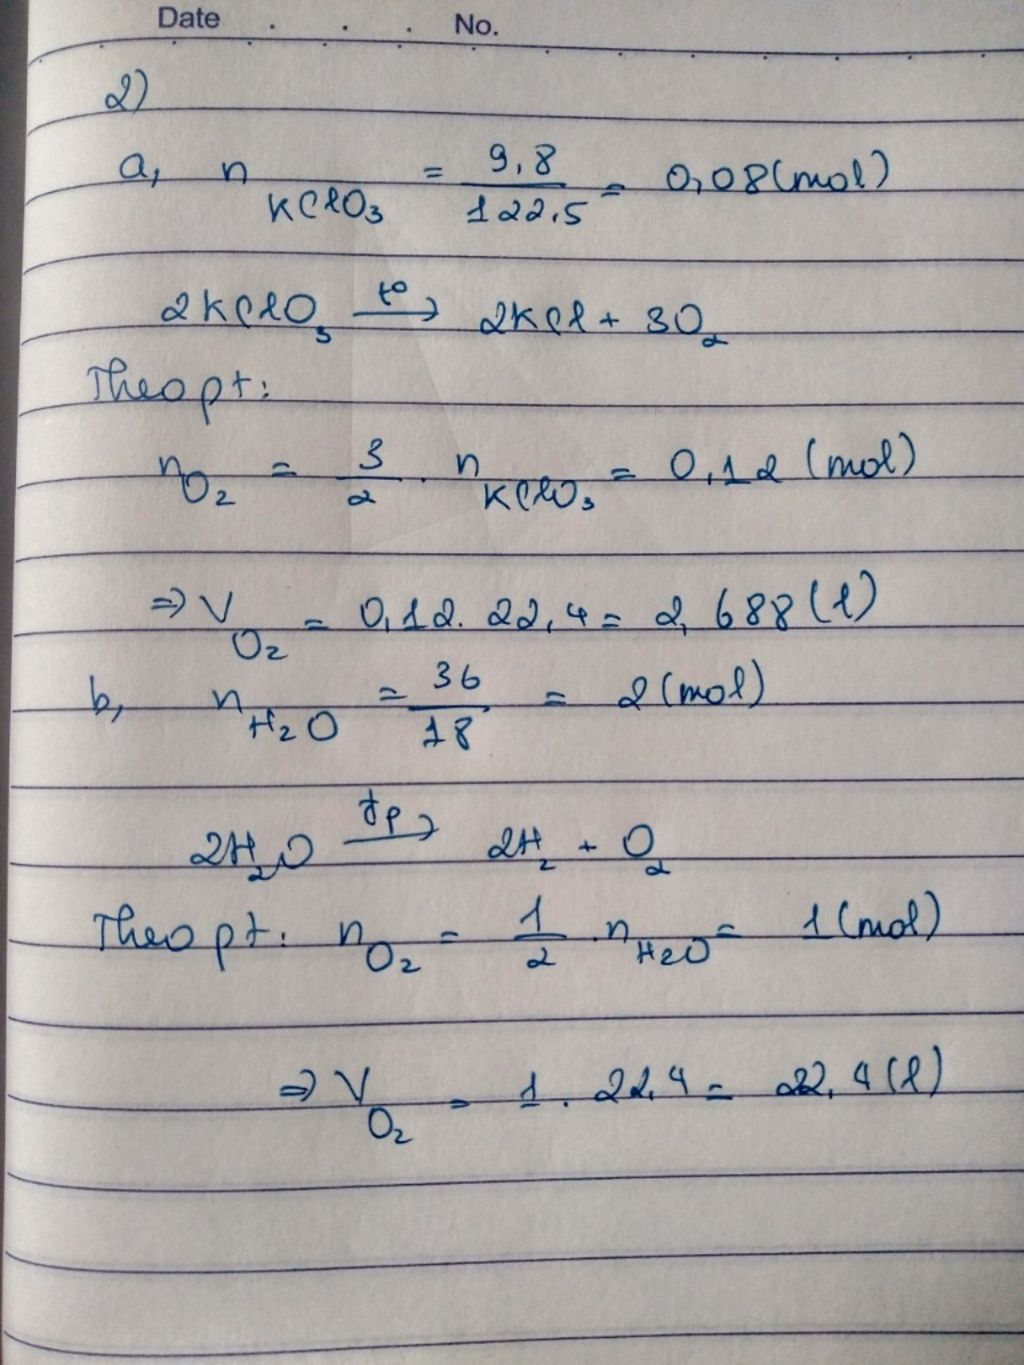 Date . . . No.
2)
a, n KClO3 = 9,8/122,5 = 0,08(mol)
2KClO3 t° → 2KCl + 3O2
Theo pt:
nO2 = 3/2 . nKClO3 = 0,12 (mol)
=> VO2 = 0,12. 22,4 = 2,688(l)
b, nH2O = 36/18 = 2(mol)
2H2O đp → 2H2 + O2
Theo pt: nO2 = 1/2 .nH2O = 1(mol)
=> VO2 = 1. 22,4 = 22,4(l)